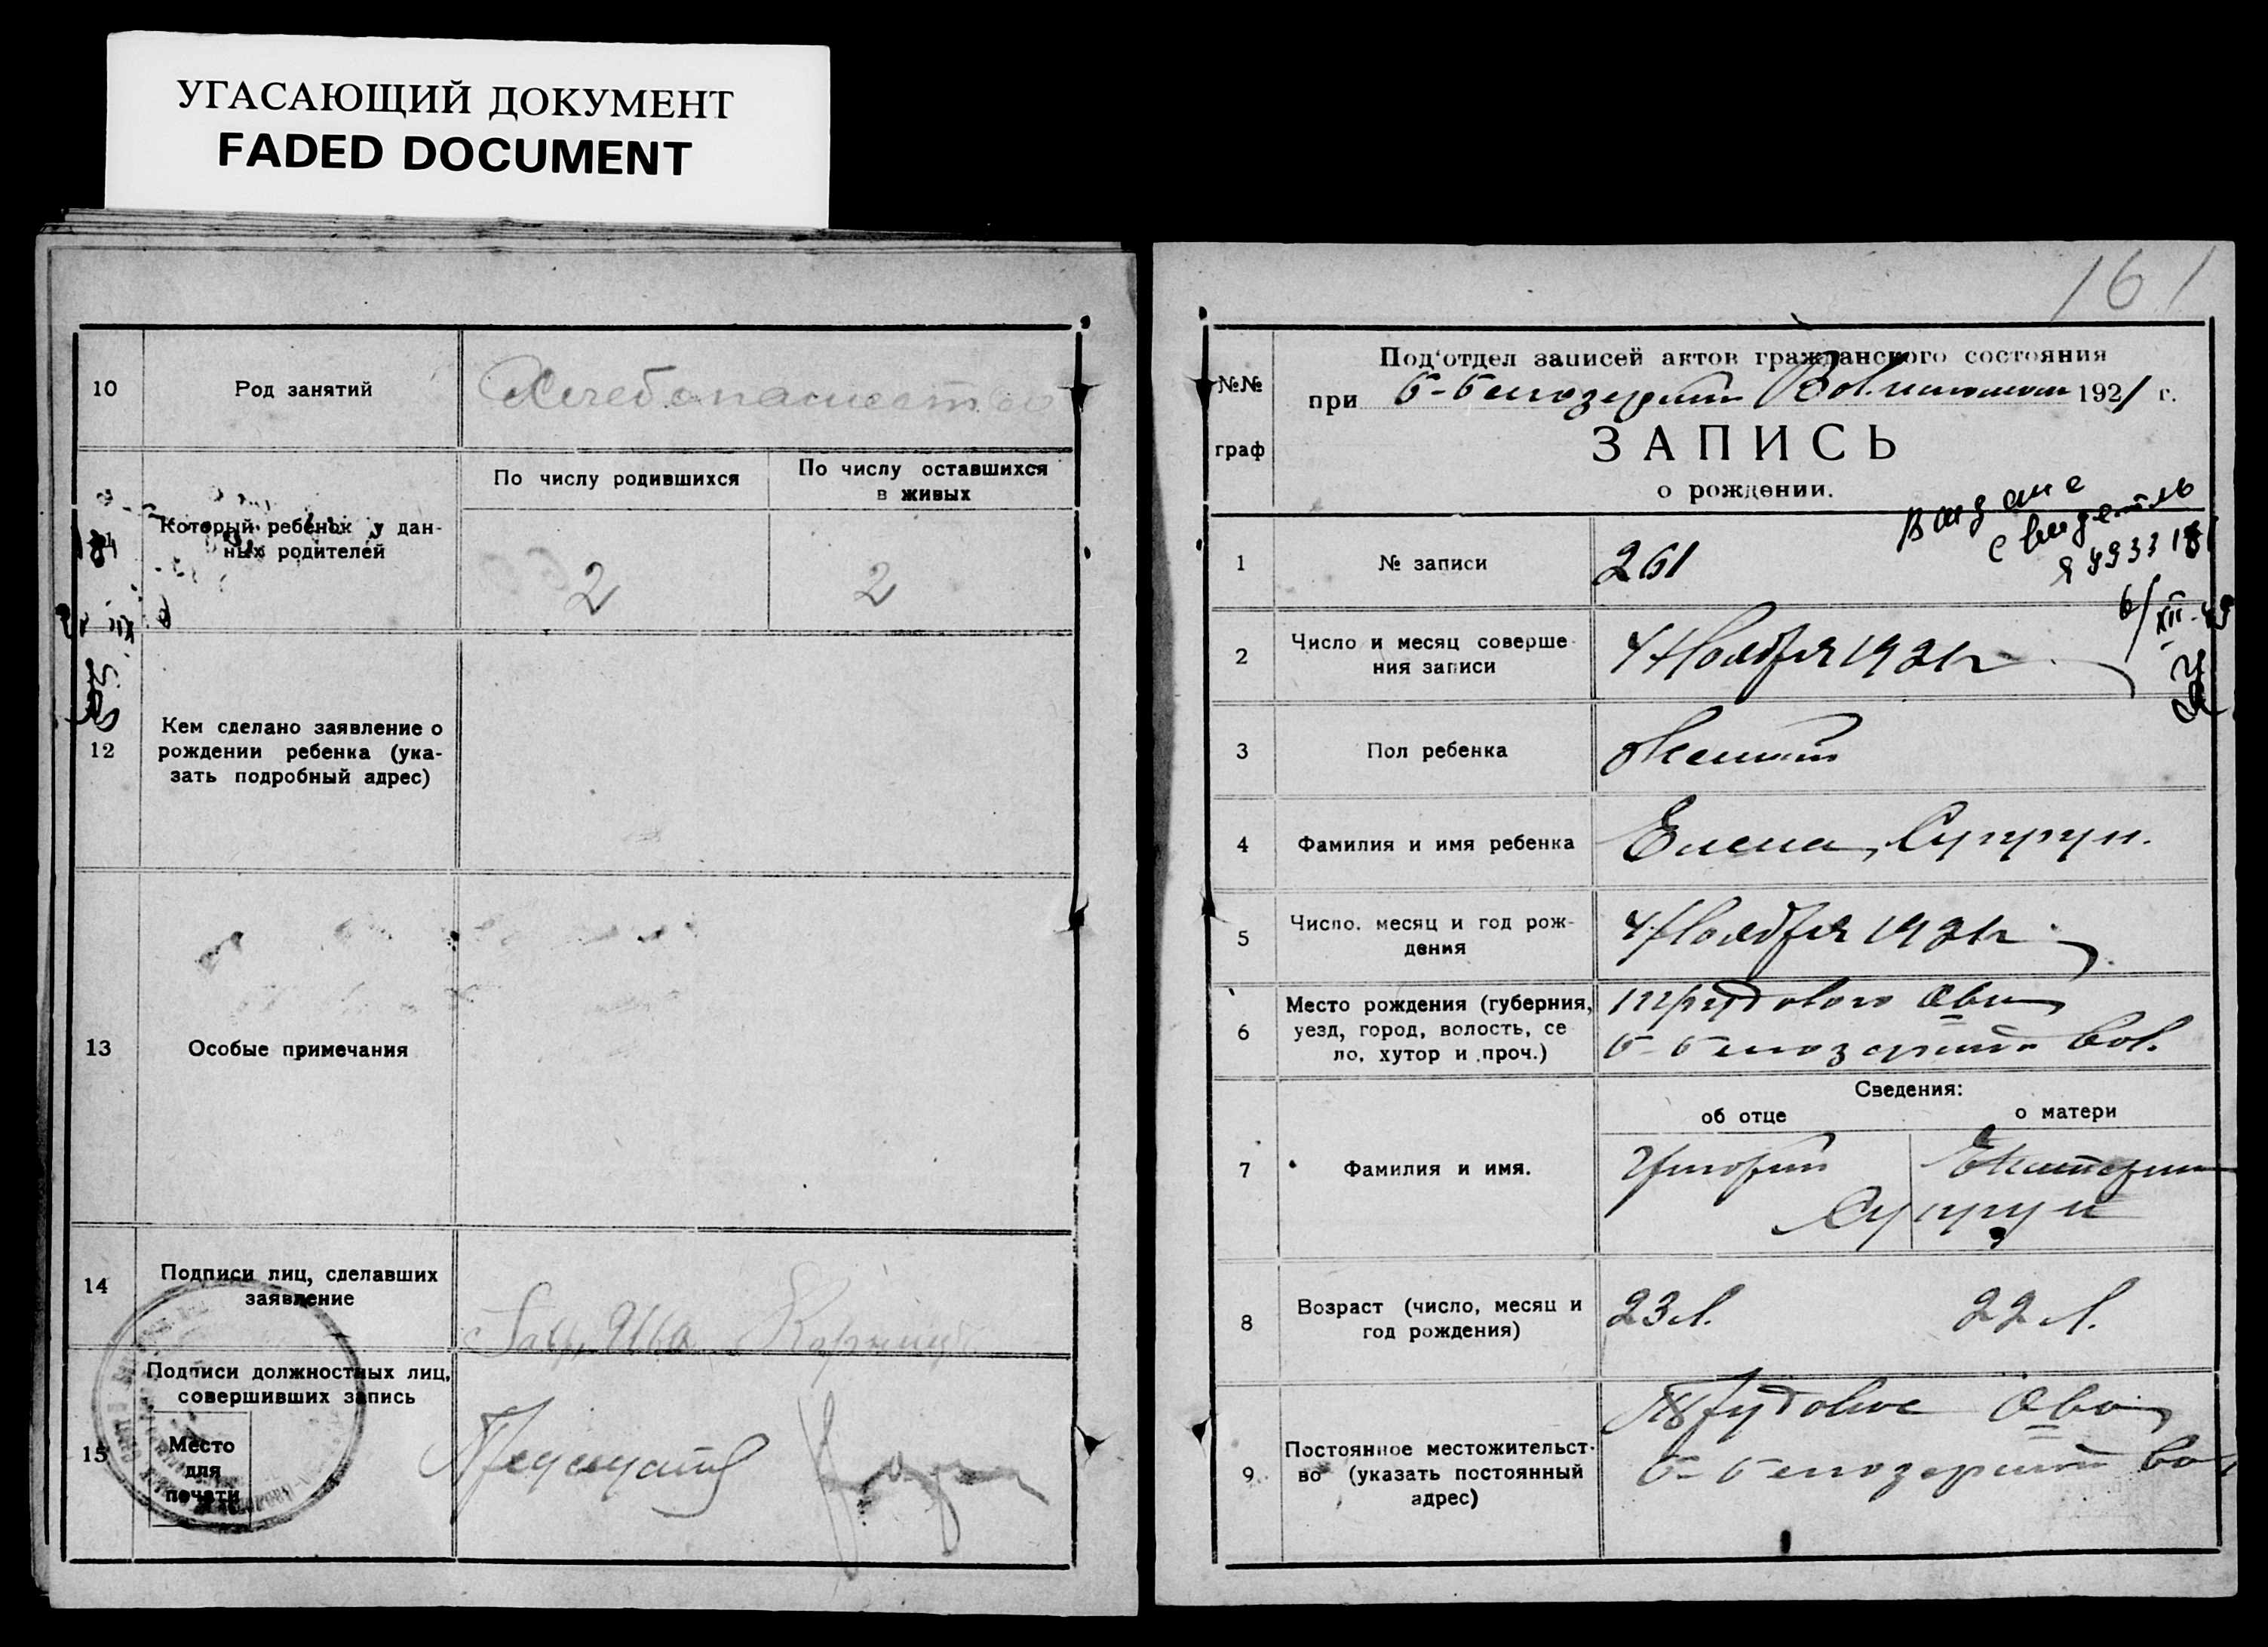 УГАСАЮЩИЙ ДОКУМЕНТ
FADED DOCUMENT
10
Род занятий
Хлебопашество
Который ребенок у дан-
ных родителей
По числу родившихся
По числу оставшихся
в живых
2
2
12
Кем сделано заявление о
рождении ребенка (ука-
зать подробный адрес)
13
Особые примечания
14
Подписи лиц, сделавших
заявление
15
Подписи должностных лиц,
совершивших запись
Место
для
печати
161
№№
граф
Под'отдел записей актов гражданского состояния
при Б-Белозерском Волисполком 1921 г.
ЗАПИСЬ
о рождении.
Выдане
свидетель
6/XII-49
1
№ записи
261
2
Число и месяц соверше-
ния записи
4 Ноября 1921 г
3
Пол ребенка
Женский
4
Фамилия и имя ребенка
Елена, Супрун.
5
Число, месяц и год рож-
дения
4 Ноября 1921 г
6
Место рождения (губерния,
уезд, город, волость, се-
ло, хутор и проч.)
Трудового Об-ва
Б-Белозерской вол.
Сведения:
об отце
о матери
7
Фамилия и имя.
Григорий
Екатерина
Супрун
8
Возраст (число, месяц и
год рождения)
23 л.
22 л.
9
Постоянное местожительст-
во (указать постоянный
адрес)
Трудовое Об-во
Б-Белозерской вол